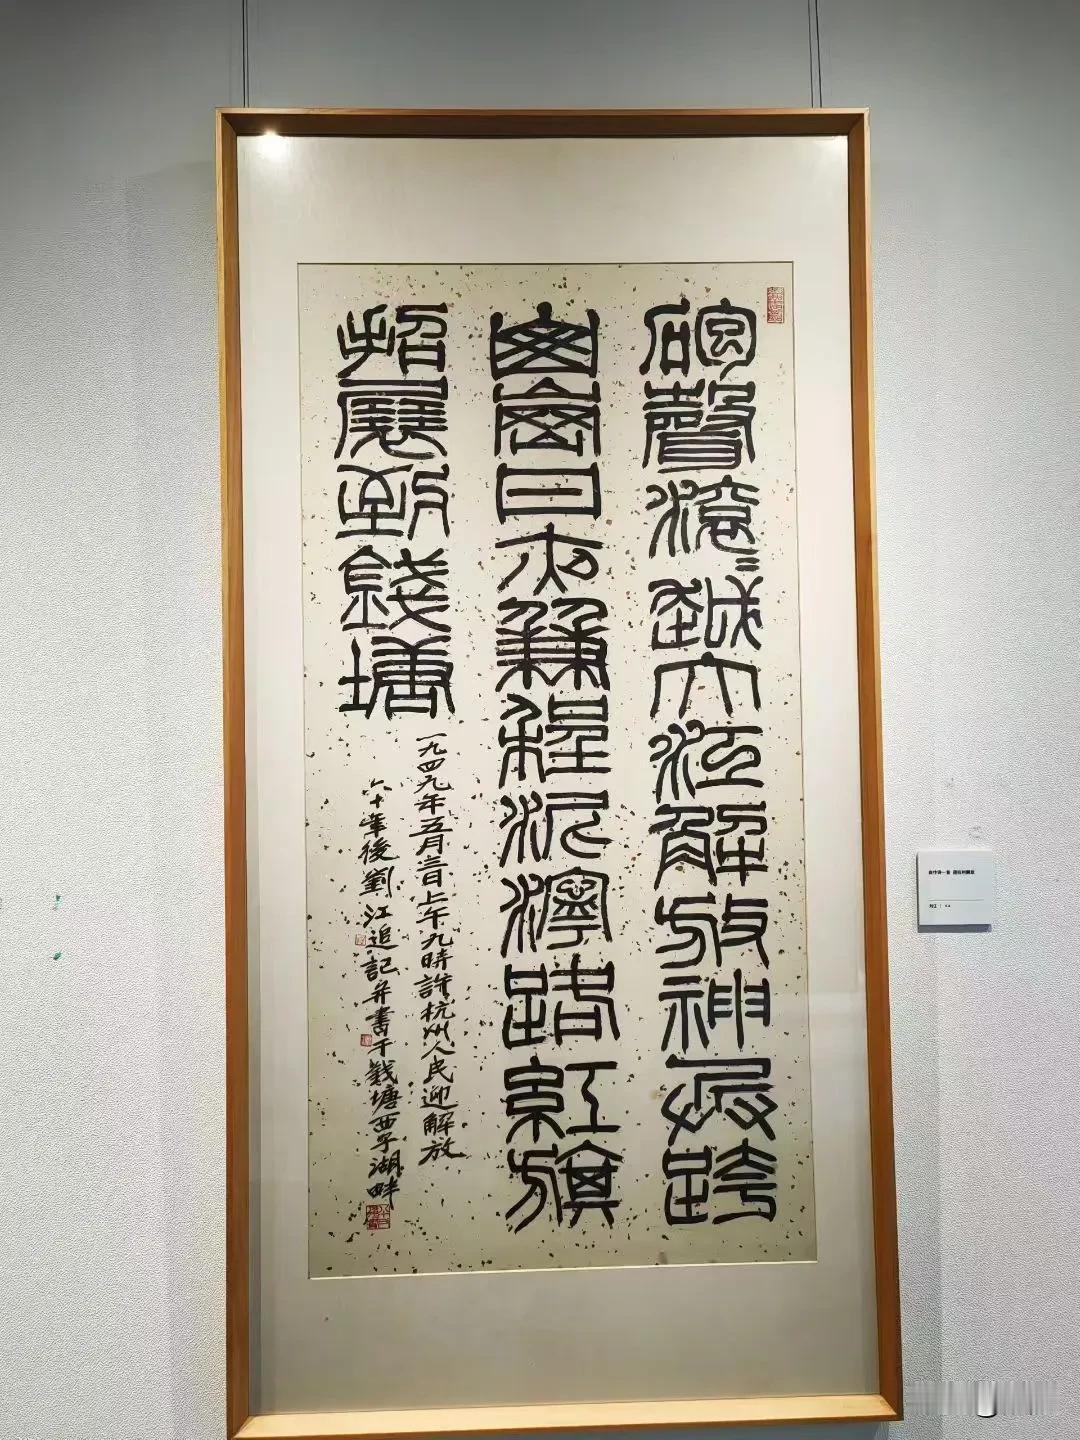 砲聲滾=越大江解放神兵跨
日夜兼程泥濘路紅旗
招展到錢塘
一九四九年五月三日上午九時許杭州人民迎解放
六十年後劉江追記并書于錢塘西子湖畔